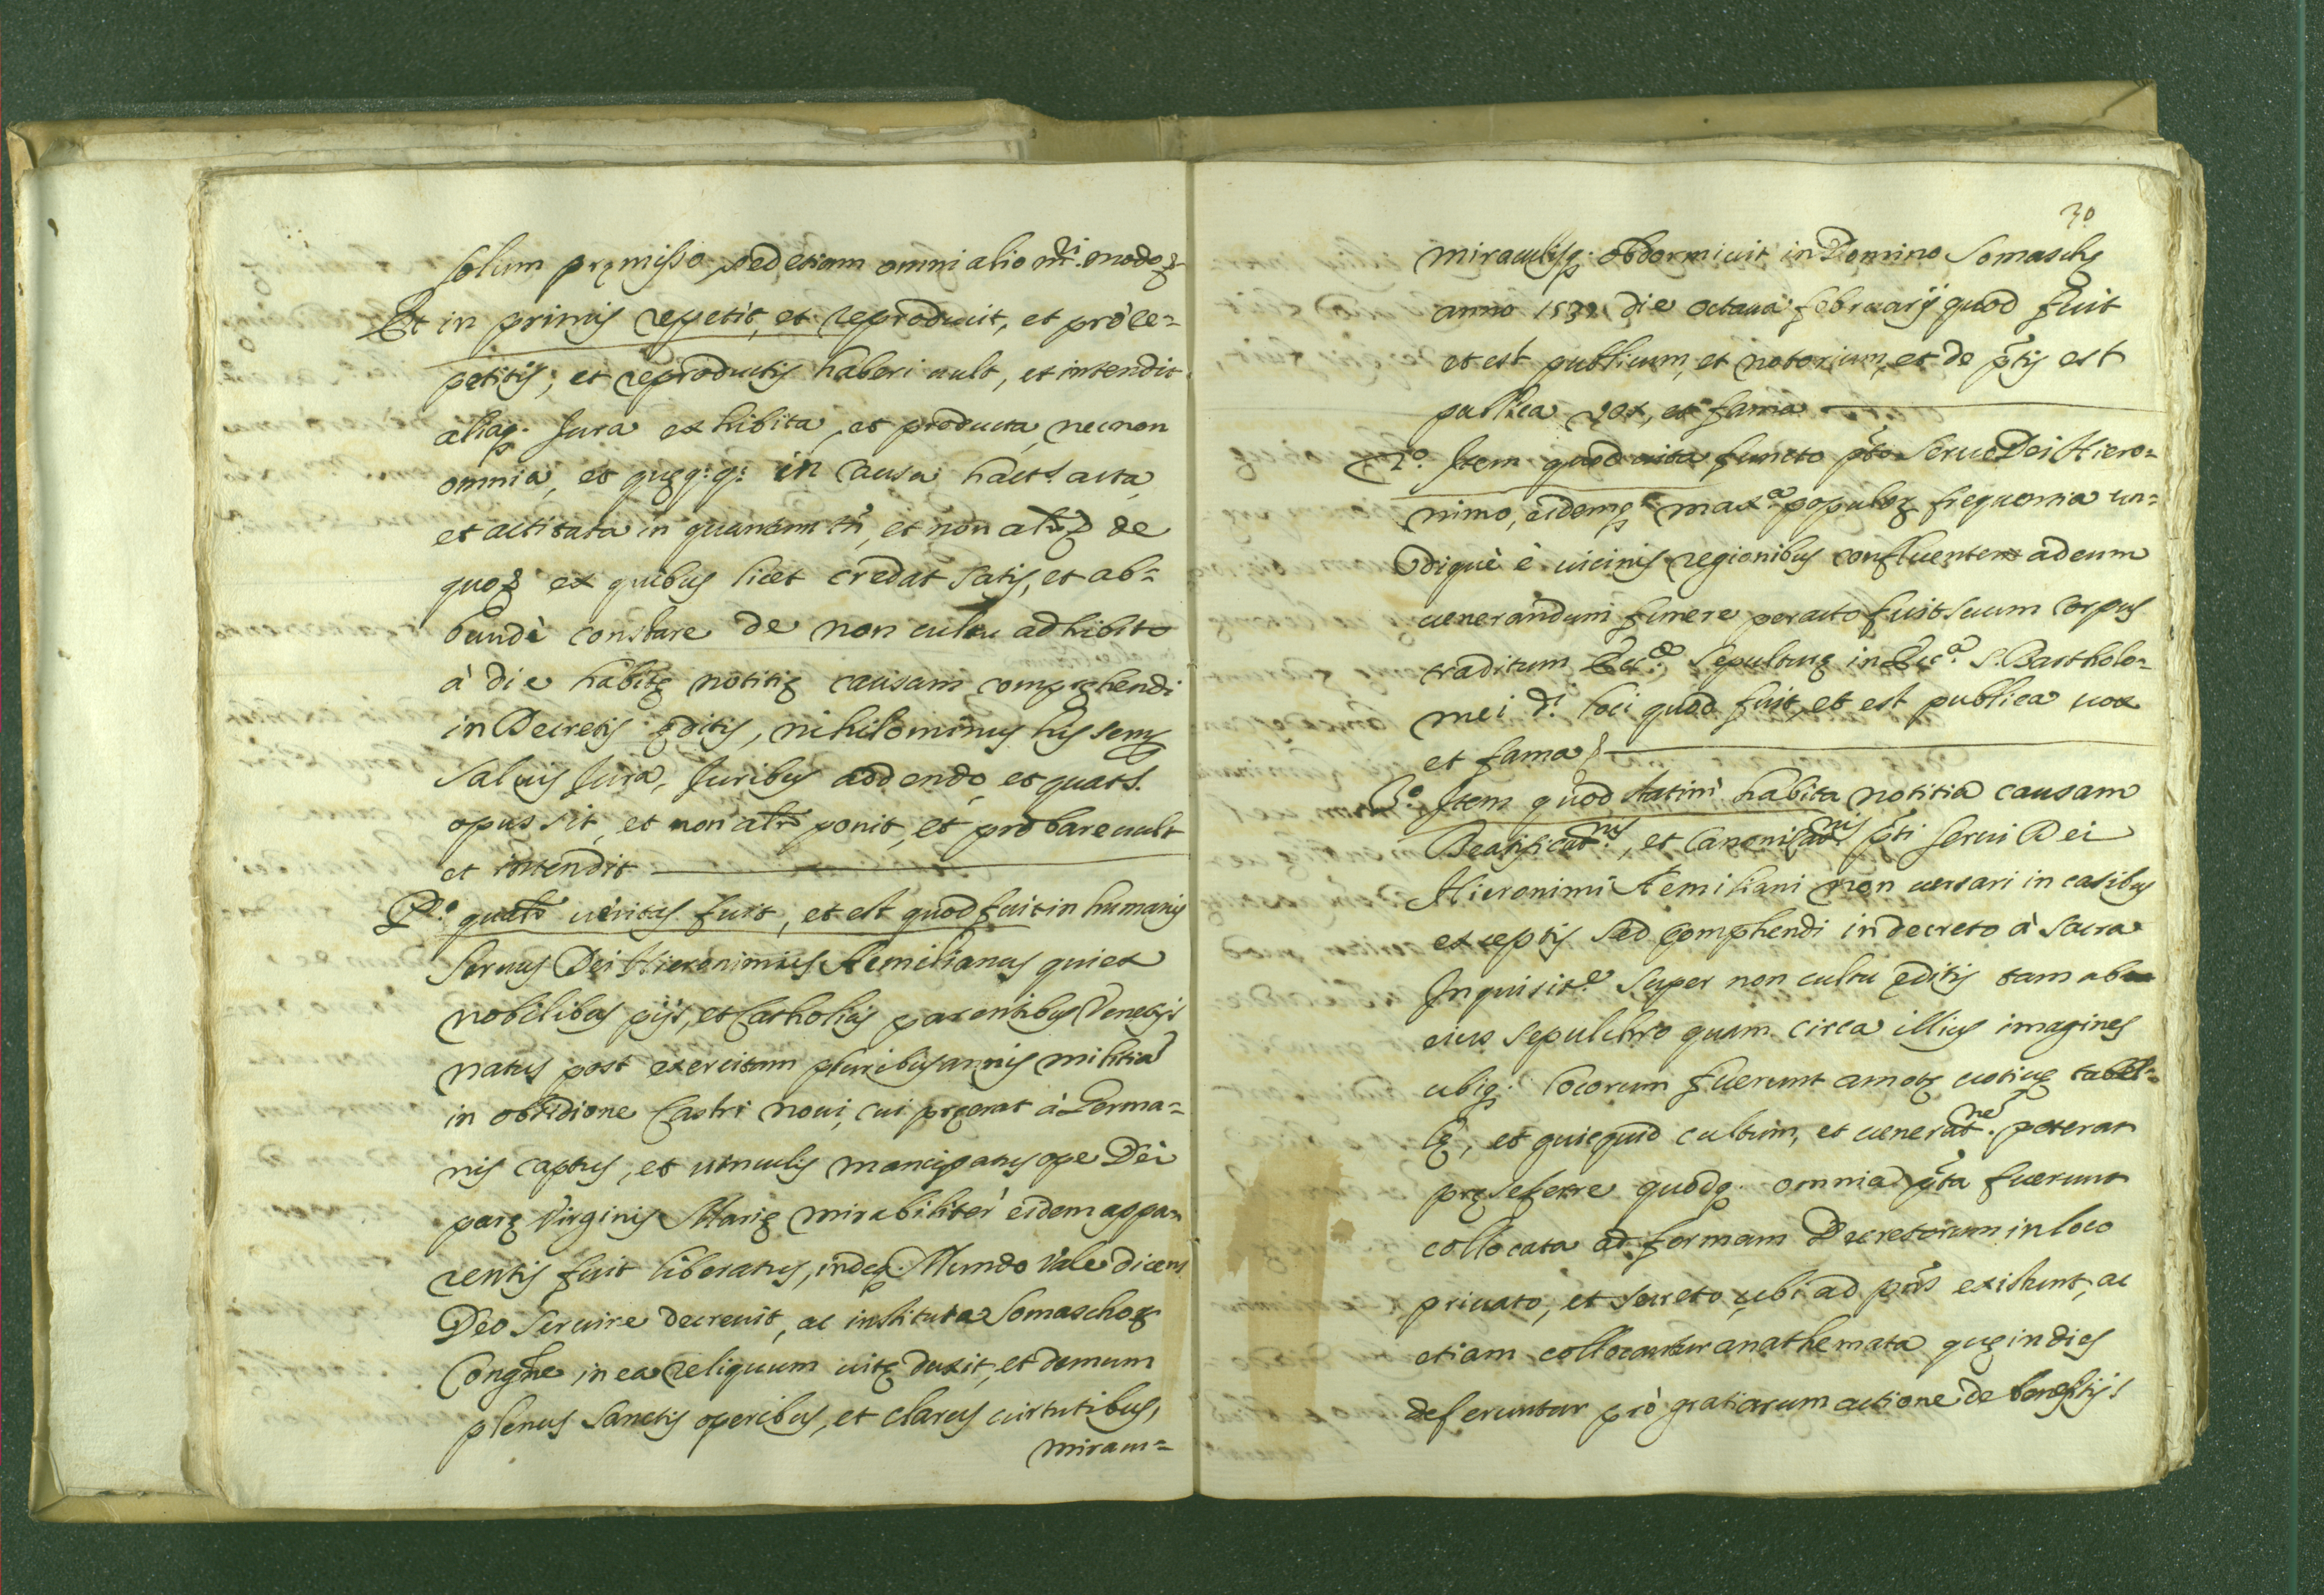 solum pręmisso, sed etiam omni alio m.ri modo &
Et in primis repetit, et reproducit, et pro re=
petitis, et reproductis haberi uult, et intendit
aliaq. Jura exhibita, et producta, necnon
omnia, et quęq: q: in causa hact.s acta,
et actitata in quantum tñ, et non al.r &
quoꝝ ex quibus licet credat satis, et ab=
bundè constare de non cultu adhibito
à die habitę notitię causam comprehendi
in Decretis ęditis, nihilominus his semp
saluis Jura, Juribus addendo, et quat.s
opus sit, et non al.r ponit, et probare uult
et intendit
P.º qualr ueritas fuit, et est quod fuit in humanis
seruus Dei Hieronimus Aemilianus qui ex
nobilibus pijs, et Catholicis parentibus Venetijs
natus post exercitam pluribus annis militiã
in obsidione Castri noui, cui pręerat à Germa=
nis captus, et uinculis mancipatus ope Dei
parę Virginis Marię mirabiliter eidem appa=
rentis fuit liberatus, indeq. Mundo Vale dicens
Deo seruire decreuit, ac instituta Somaschoꝝ
Congne in ea reliquum uitę duxit, et demum
plenus sanctis operibus, et clarus uirtutibus,
miracu=
30
miraculisq. obdormiuit in Domino Somaschę
anno 1537 die octaua februarij quod fuit
et est publicum, et notorium, et de p̃tis est
publica vox, et fama
2.º Item quod uita functo p̃to Seruo Dei Hiero=
nimo, eidemq. max.a populoꝝ frequentia un=
diquè è uicinis regionibus confluentem ad eum
uenerandum funere peracto fuit suum corpus
traditum Ecc.æ sepulturę in Ecc.a S. Bartholo=
mei d.i loci quod fuit, et est publica uox
et fama &
3.º Item quod statim habita notitia causam
Beatificat.nis, et Canonizat.nis p̃ti serui Dei
Hieronimi Aemiliani non uersari in casibus
exceptis sed comphendi in decreto à sacra
Inquisit.e super non cultu ęditis tam ab
eius sepulchro quam circa illius imagines
ubiq. locorum fuerunt amotę uotiuę tabel=
lę, et quicquid cultum, et uenerat.ne poterat
pręseferre quodq. omnia p̃ta fuerunt
collocata ad formam Decretorum in loco
priuato, et secreto ubi ad p̃ns existunt, ac
etiam collocantur anathemata quę in dies
deferuntur prò gratiarum actione de benefitijs